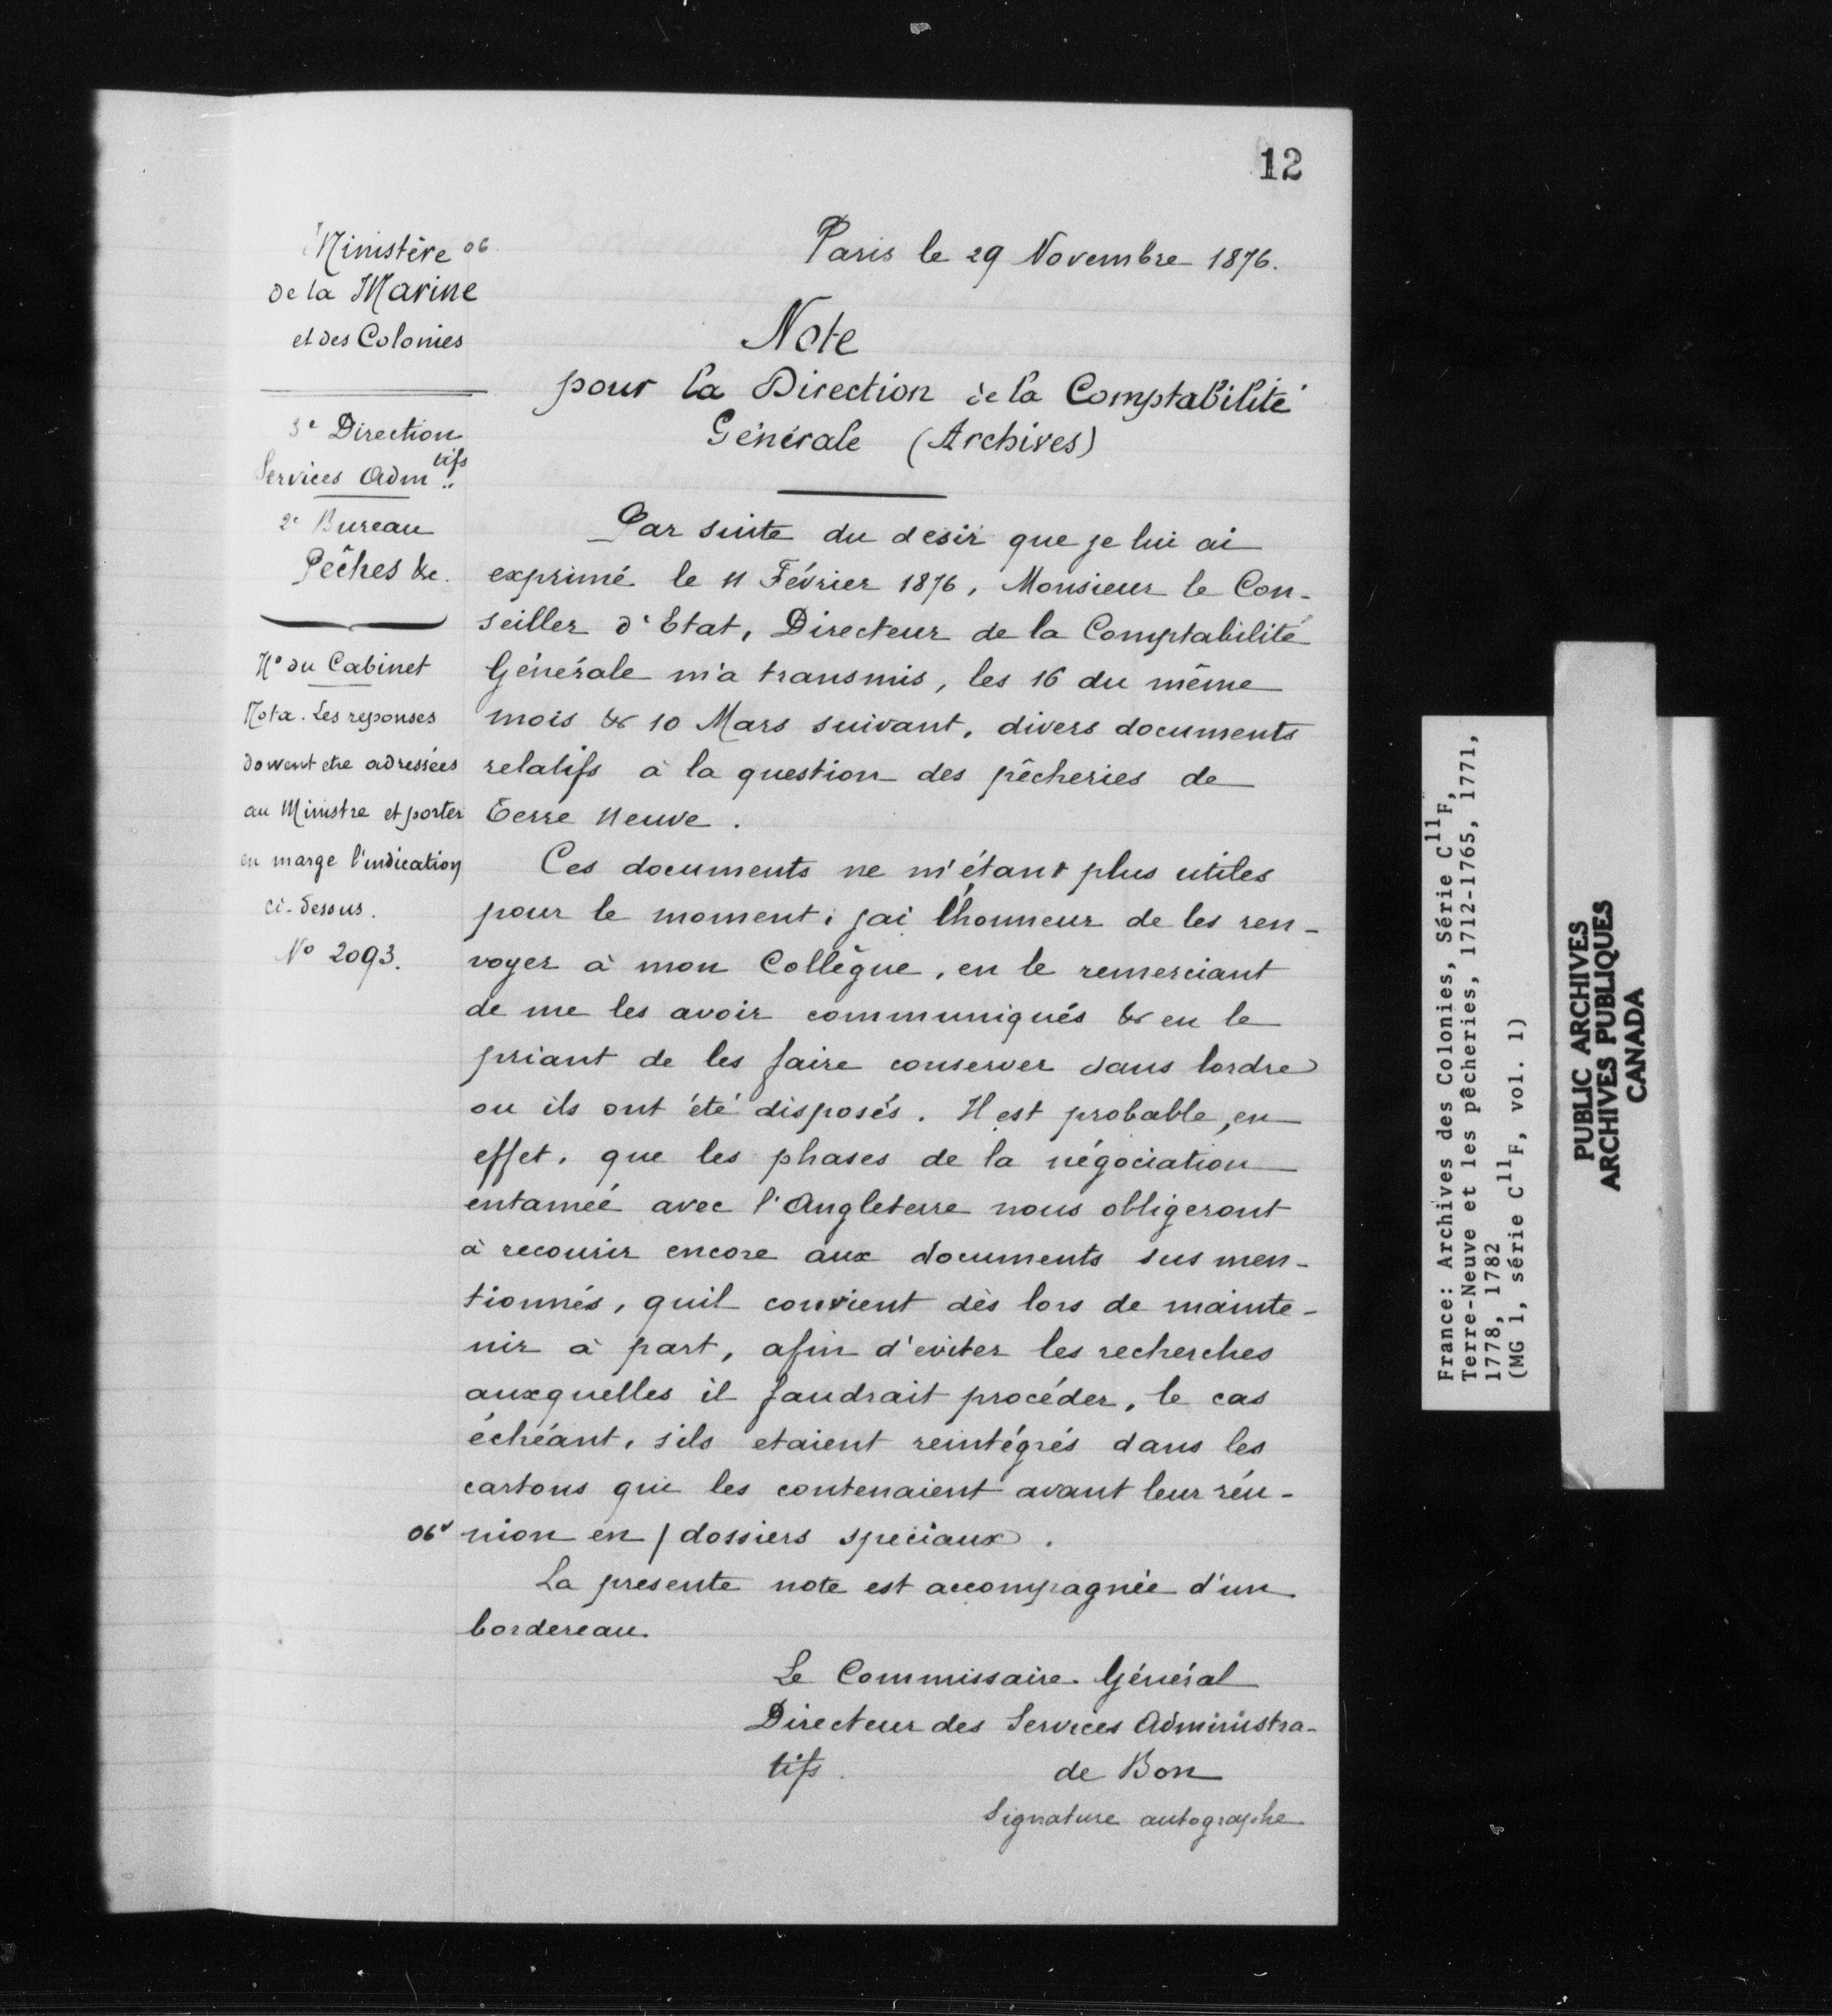 12
Ministère 06
de la Marine
et des Colonies
3e Direction
Services Adm tifs
2e Bureau
Pêches &c.
No du Cabinet
Nota. Les reponses
doivent etre adressées
au Ministre et porter
en marge l'indication
ci-dessus.
No 2093.
Paris le 29 Novembre 1876.
Note
pour la Direction de la Comptabilité
Générale (Archives)
Par suite du desir que je lui ai
exprimé le 11 Février 1876, Monsieur le Con-
seiller d'Etat, Directeur de la Comptabilité
Générale m'a transmis, les 16 du même
mois & 10 Mars suivant, divers documents
relatifs à la question des pêcheries de
Terre Neuve.
Ces documents ne m'étant plus utiles
pour le moment, j'ai l'honneur de les ren-
voyer à mon Collègue, en le remerciant
de me les avoir communiqués & en le
priant de les faire conserver dans l'ordre
ou ils ont été disposés. Il est probable, en
effet, que les phases de la négociation
entamée avec l'Angleterre nous obligeront
à recourir encore aux documents sus men-
tionnés, qu'il convient dès lors de mainte-
nir à part, afin d'eviter les recherches
auxquelles il faudrait procéder, le cas
échéant, s'ils etaient reintégrés dans les
cartons qui les contenaient avant leur réu-
06v nion en / dossiers speciaux.
La presente note est accompagnée d'un
bordereau.
Le Commissaire Général
Directeur des Services Administra-
tifs. de Bon
Signature autographe
France: Archives des Colonies, Série C11F,
Terre-Neuve et les pêcheries, 1712-1765, 1771,
1778, 1782
(MG 1, série C11F, vol. 1)
PUBLIC ARCHIVES
ARCHIVES PUBLIQUES
CANADA